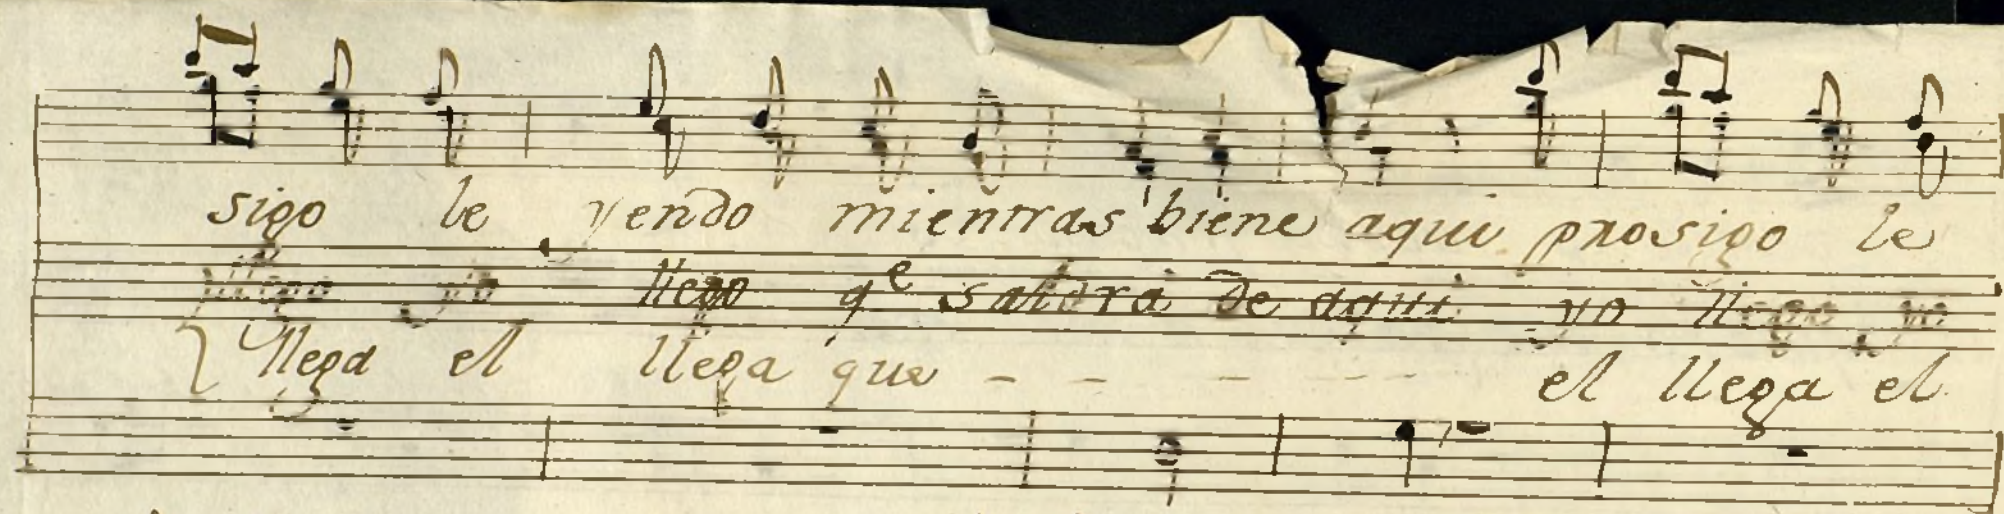 sigo le yendo mientras biene aqui prosigo le
llego yo llego qe saldra de aqui yo llego yo
llega el llega que - - - - el llega el